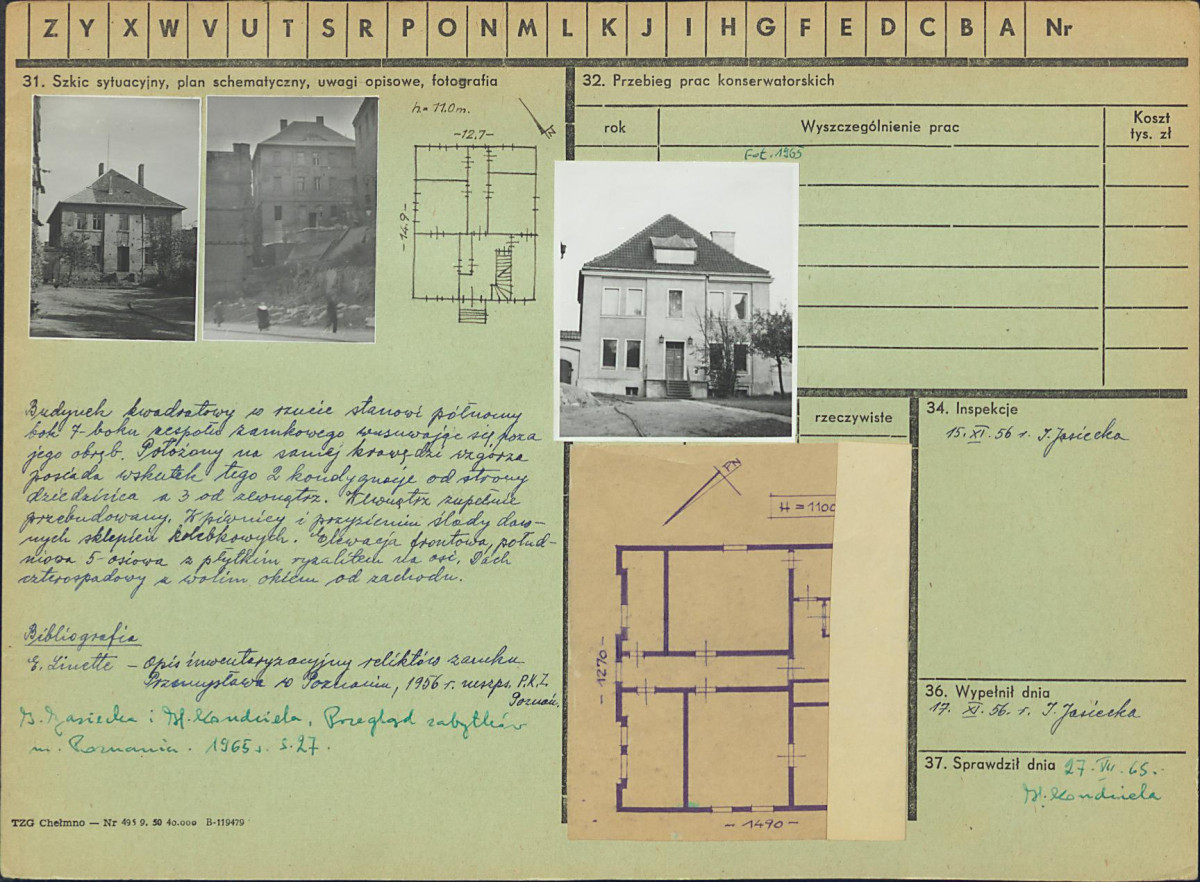 Z Y X W V U T S R P O N M L K J I H G F E D C B A Nr
31. Szkic sytuacyjny, plan schematyczny, uwagi opisowe, fotografia
h = 11.0m.
N
-12,7-
-14,9-
Budynek kwadratowy w rzucie stanowi północny
bok 7-boku zespołu zamkowego wysuwając się poza
jego obręb. Położony na samej krawędzi wzgórza
posiada wskutek tego 2 kondygnacje od strony
dziedzińca a 3 od zewnątrz. Wewnątrz zupełnie
przebudowany. W piwnicy i przyziemiu ślady daw-
nych sklepień kolebkowych. Elewacja frontowa, połud-
niowa 5-osiowa z płytkim ryzalitem na osi. Dach
czterospadowy z wolim okiem od zachodu.
Bibliografia
E. Linette - Opis inwentaryzacyjny reliktów zamku
Przemysława w Poznaniu, 1956 r. maszps. P.K.Z.
Poznań.
I. Jasiecka i H. Kondziela, Przegląd zabytków
m. Poznania. 1965 r. s. 27.
TZG Chełmno — Nr 495 9. 50 40.000 B-119479
32. Przebieg prac konserwatorskich
rok
Wyszczególnienie prac
Koszt
tys. zł
Fot. 1965
rzeczywiste
N
H = 1100
-1270-
-1490-
34. Inspekcje
15. XI. 56 r. I. Jasiecka
36. Wypełnił dnia
17. XI. 56. r. I. Jasiecka
37. Sprawdził dnia 27. VII. 65.
H. Kondziela